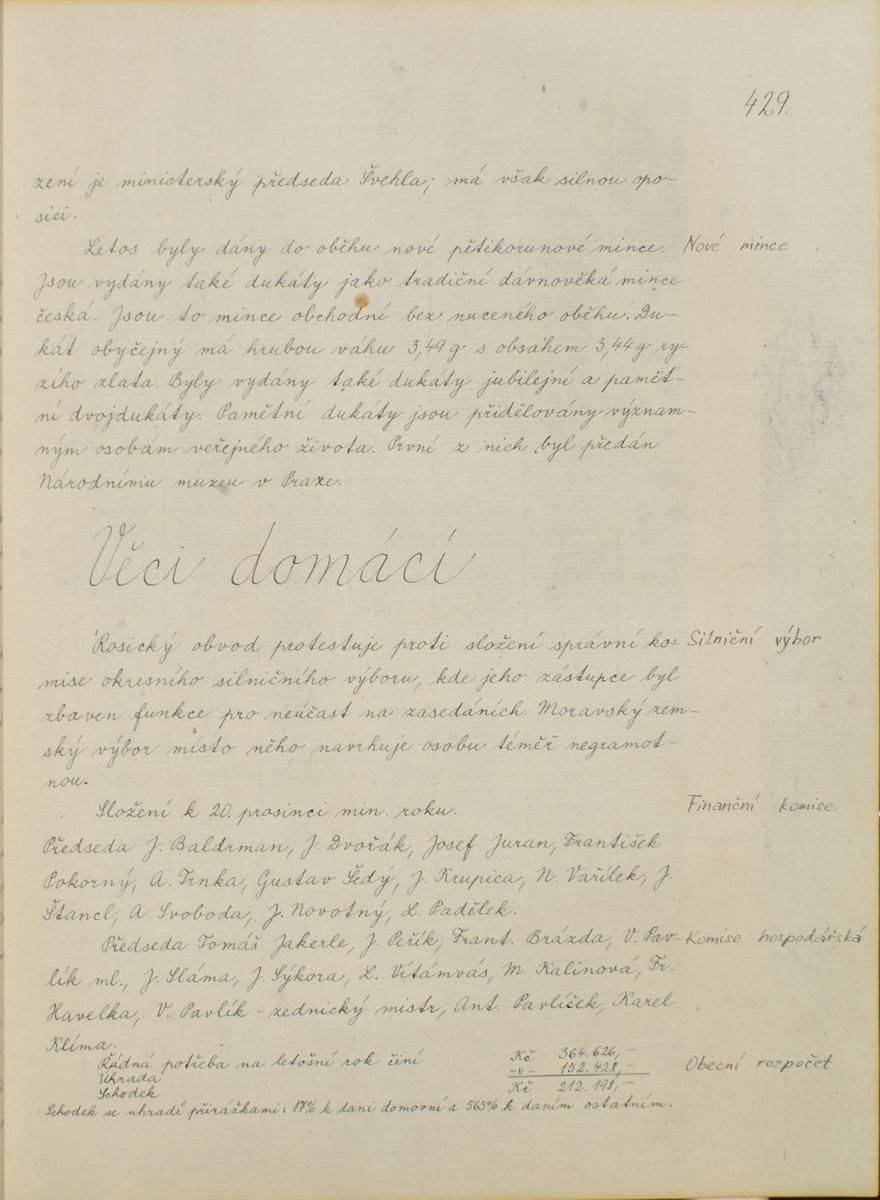 429.
zení je ministerský předseda Švehla; má však silnou opo-
sici.
Letos byly dány do oběhu nové pětikorunové mince. Nové mince
Jsou vydány také dukáty jako tradiční dávnověká mince
česká. Jsou to mince obchodní bez nuceného oběhu. Du-
kát obyčejný má hrubou váhu 3,49 g s obsahem 3,44 g ry-
zího zlata. Byly vydány také dukáty jubilejní a pamět-
ní dvojdukáty. Pamětní dukáty jsou přidělovány význam-
ným osobám veřejného života. První z nich byl předán
Národnímu muzeu v Praze.
Věci domácí
Rosický obvod protestuje proti složení správní ko- Silniční výbor
mise okresního silničního výboru, kde jeho zástupce byl
zbaven funkce pro neúčast na zasedáních. Moravský zem-
ský výbor místo něho navrhuje osobu téměř negramot-
nou.
Složení k 20. prosinci min. roku. Finanční komise
Předseda J. Baldrman, J. Dvořák, Josef Juran, František
Pokorný, A. Trnka, Gustav Šedý, J. Krupica, N. Vařílek, J.
Štancl, A. Svoboda, J. Novotný, L. Padělek.
Předseda Tomáš Jakerle, J. Peřík, Frant. Brázda, V. Pav- Komise hospodářská
lík ml., J. Sláma, J. Sýkora, L. Vítámvás, M. Kalinová, Fr.
Havelka, V. Pavlík - zednický mistr, Ant. Pavlíček, Karel
Klíma.
Řádná potřeba na letošní rok činí Kč 364.626,- Obecní rozpočet
Úhrada -v- 152.428,-
Schodek Kč 212.198,-
Schodek se uhradí přirážkami: 17% k dani domovní a 565% k daním ostatním.